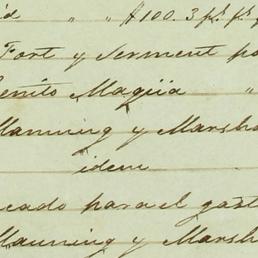 " " $100. 3 ps. ps.
Fort y Serment po
Benito Magüa "
Manning y Marsha
idem
cado para el gast
Manning y Marsh